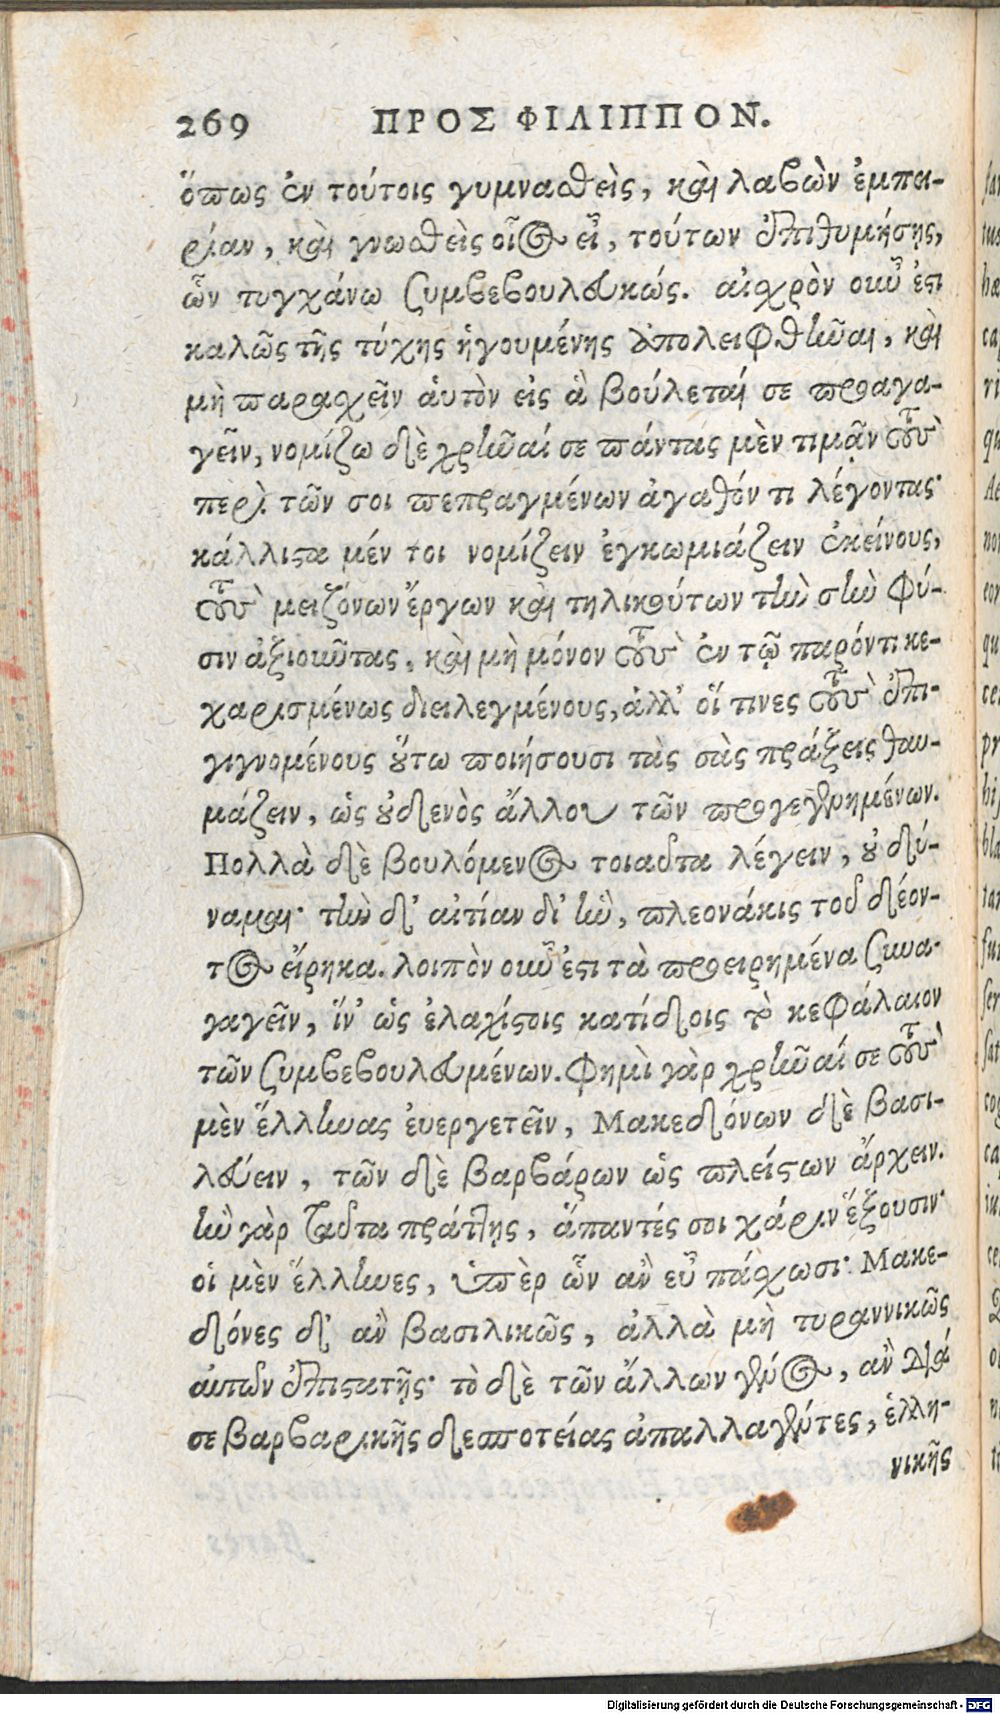 269 ΠΡΟΣ ΦΙΛΙΠΠΟΝ.
ὅπως ἐν τούτοις γυμνασθεὶς, καὶ λαβὼν ἐμπει-
ρίαν, καὶ γνωσθεὶς οἷος εἶ, τούτων ἐπιθυμήσῃς,
ὧν τυγχάνω συμβεβουλευκώς. αἰσχρὸν οὖν ἐστι
καλῶς τῆς τύχης ἡγουμένης ἀπολειφθῆναι, καὶ
μὴ παρασχεῖν αὑτὸν εἰς ἃ βούλεταί σε προαγα-
γεῖν, νομίζω δὲ χρῆναί σε πάντας μὲν τιμᾶν τοὺς
περὶ τῶν σοι πεπραγμένων ἀγαθόν τι λέγοντας·
κάλλιστα μέν τοι νομίζειν ἐγκωμιάζειν ἐκείνους,
τοὺς μειζόνων ἔργων καὶ τηλικούτων τὴν σὴν φύ-
σιν ἀξιοῦντας, καὶ μὴ μόνον τοὺς ἐν τῷ παρόντι κε-
χαρισμένως διειλεγμένους, ἀλλ' οἵ τινες τοὺς ἐπι-
γιγνομένους οὕτω ποιήσουσι τὰς σὰς πράξεις θαυ-
μάζειν, ὡς οὐδενὸς ἄλλου τῶν προγεγενημένων.
Πολλὰ δὲ βουλόμενος τοιαῦτα λέγειν, οὐ δύ-
ναμαι· τὴν δ' αἰτίαν δι' ἣν, πλεονάκις τοῦ δέον-
τος εἴρηκα. λοιπὸν οὖν ἐστι τὰ προειρημένα συνα-
γαγεῖν, ἵν' ὡς ἐλαχίστοις κατίδοις τὸ κεφάλαιον
τῶν συμβεβουλευμένων. Φημὶ γὰρ χρῆναί σε τοὺς
μὲν ἕλληνας ἐυεργετεῖν, Μακεδόνων δὲ βασι-
λεύειν, τῶν δὲ βαρβάρων ὡς πλείστων ἄρχειν.
ἢν γὰρ ταῦτα πράττῃς, ἅπαντές σοι χάριν ἕξουσιν·
οἱ μὲν ἕλληνες, ὑπὲρ ὧν ἂν εὖ πάσχωσι· Μακε-
δόνες δ' ἂν βασιλικῶς, ἀλλὰ μὴ τυραννικῶς
αὐτῶν ἐπιστατῇς· τὸ δὲ τῶν ἄλλων γένος, ἂν διά
σε βαρβαρικῆς δεσποτείας ἀπαλλαγέντες, ἑλλη-
νικῆς
Digitalisierung gefördert durch die Deutsche Forschungsgemeinschaft - DFG